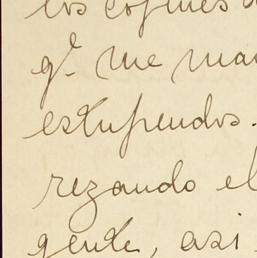 los cofines
qe. me man
estupendos.
rezando el
gente, asi